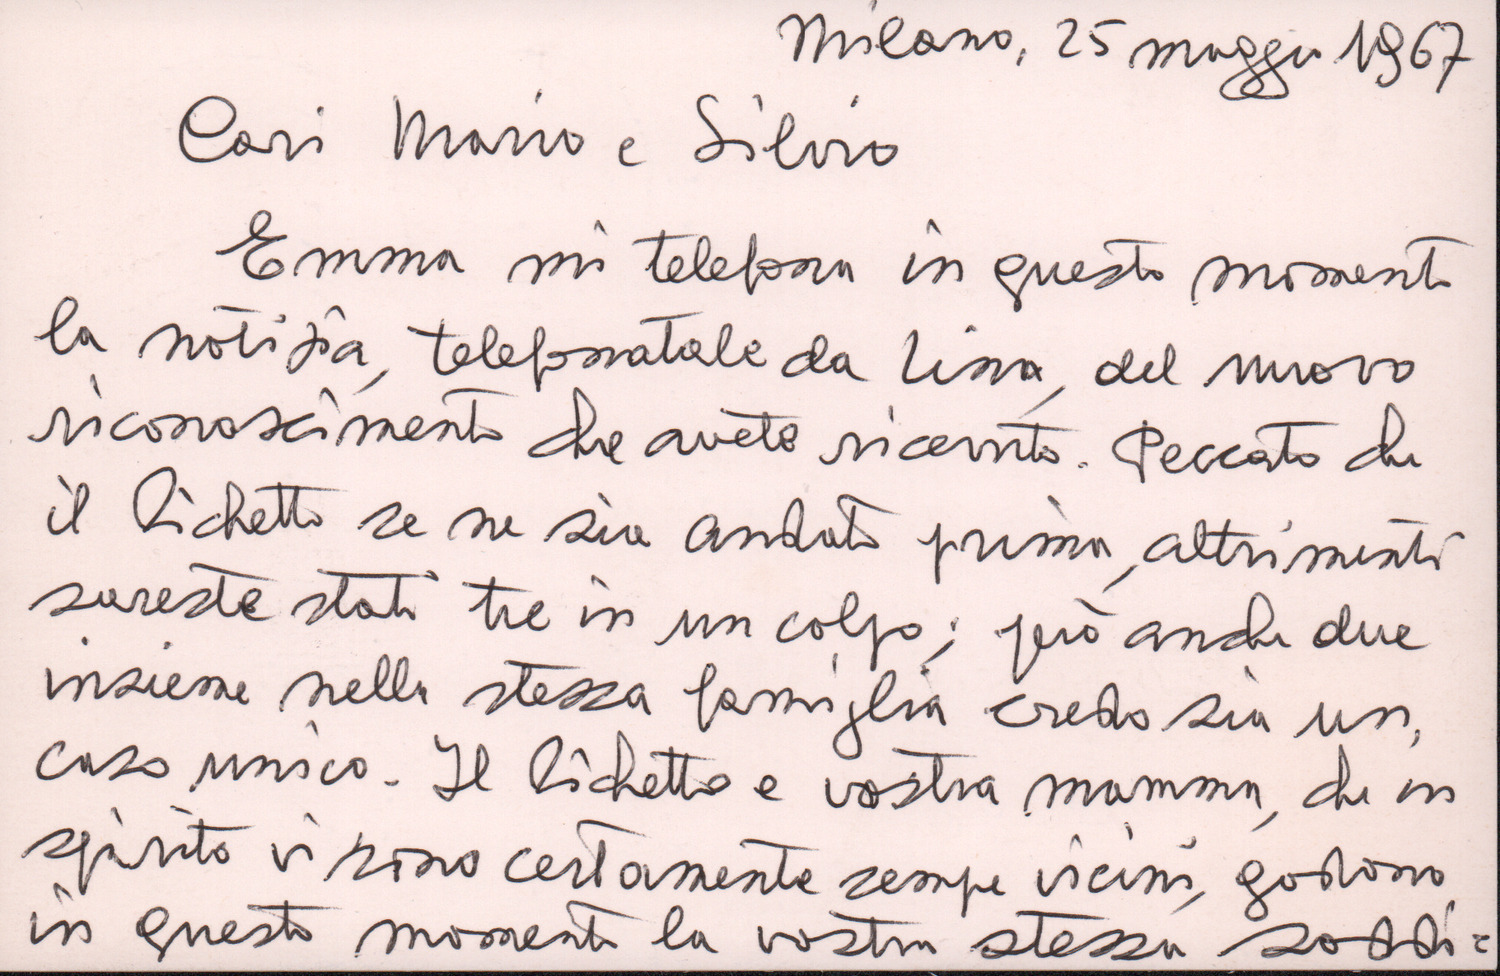 Milano, 25 maggio 1967
Cari Mario e Silvio
Emma mi telefona in questo momento
la notizia, telefonatale da Lina, del nuovo
riconoscimento che avete ricevuto. Peccato che
il Richetto se ne sia andato prima, altrimenti
sareste stati tre in un colpo; però anche due
insieme nella stessa famiglia credo sia un
caso unico. Il Richetto e vostra mamma, che in
spirito vi sono certamente sempre vicini, godono
in questo momento la vostra stessa soddi=